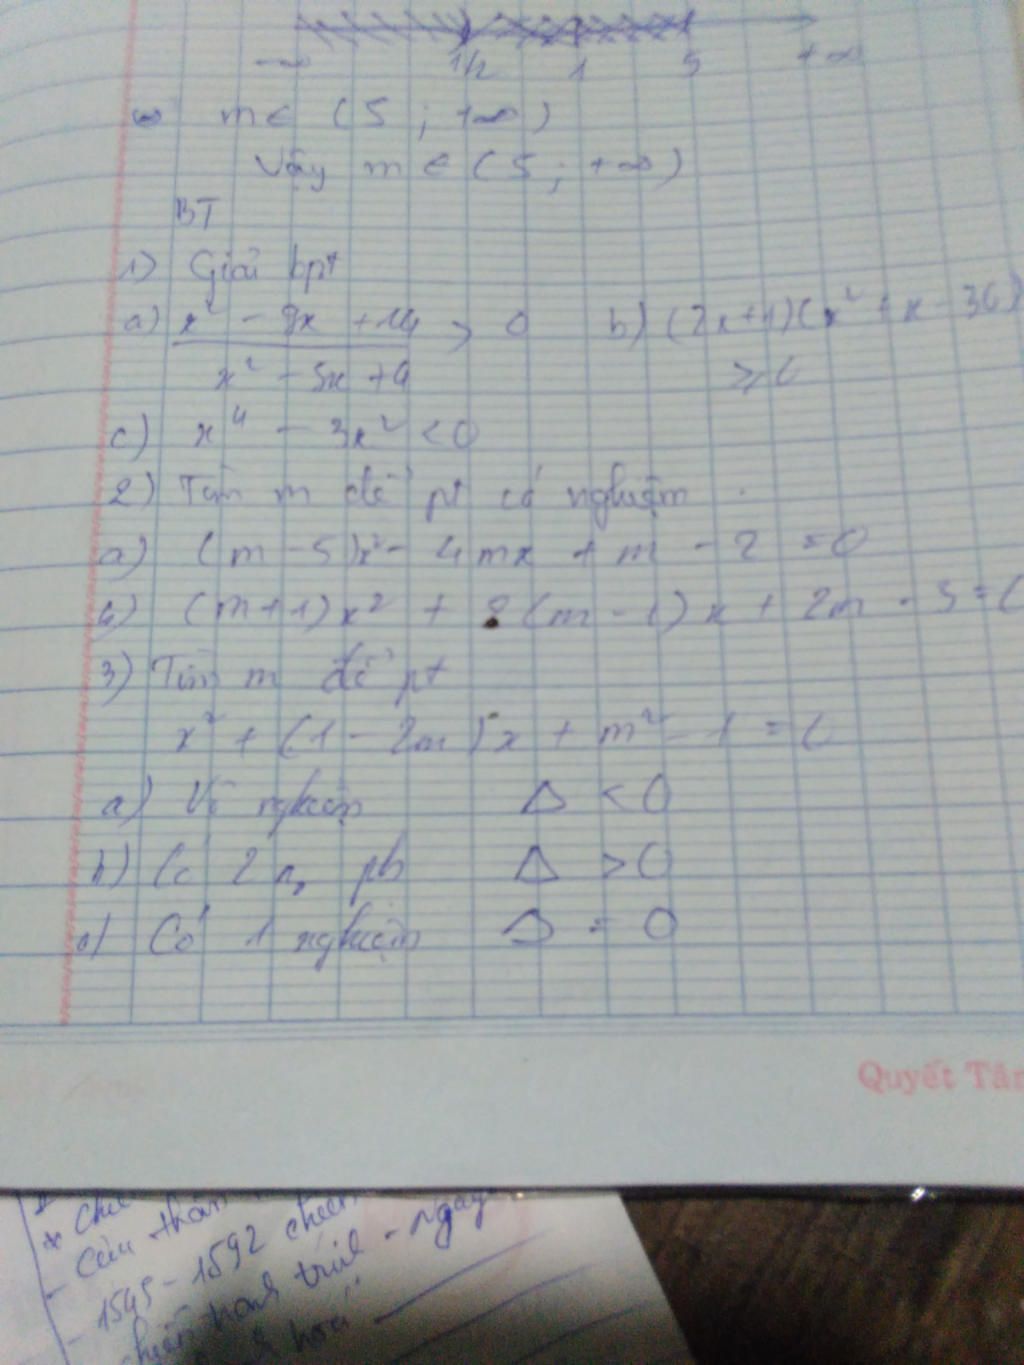 -∞ 1/2 1 5 +∞
m ∈ (5 ; +∞)
Vậy m ∈ (5 ; +∞)
BT
1) Giải bpt
a) x² - 9x + 14 / x² - 5x + 4 > 0 b) (2x+1)(x² + x - 30)
≥ 0
c) x⁴ - 3x² < 0
2) Tìm m để pt có nghiệm
a) (m - 5)x² - 4mx + m - 2 = 0
b) (m+1)x² + 2(m-1)x + 2m - 3 = 0
3) Tìm m để pt
x² + (1 - 2m)x + m² - 1 = 0
a) Vô nghiệm Δ < 0
b) Có 2 n₀ pb Δ > 0
c) Có 1 nghiệm Δ = 0
Quyết Tâ
- 1545 - 1592 chiến